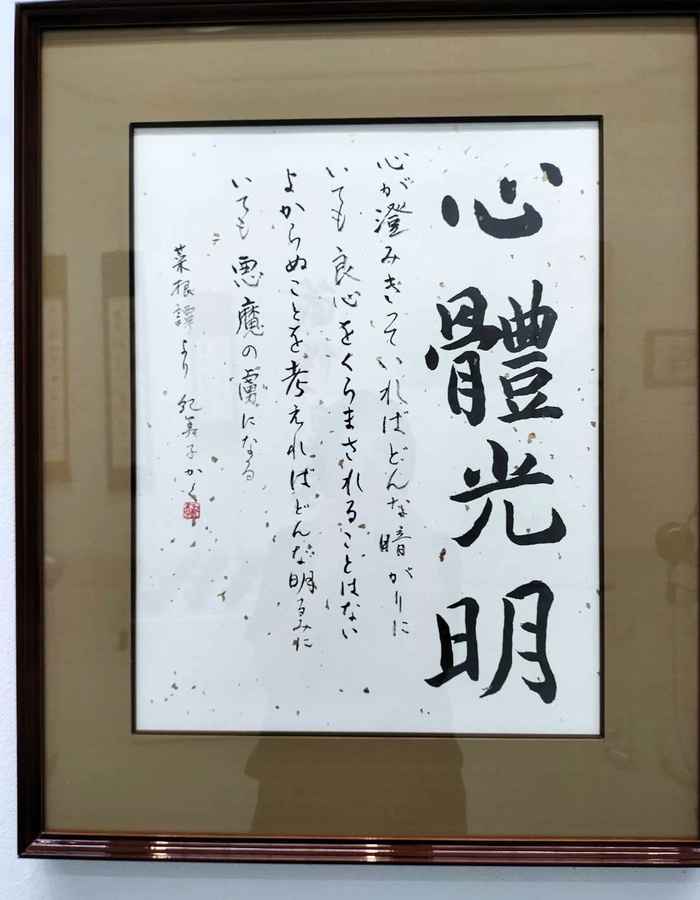 心體光明
心が澄みきっていればどんな暗がりに
いても良心をくらまされることはない
よからぬことを考えればどんな明るみに
いても悪魔の虜になる
菜根譚より 紀美子かく